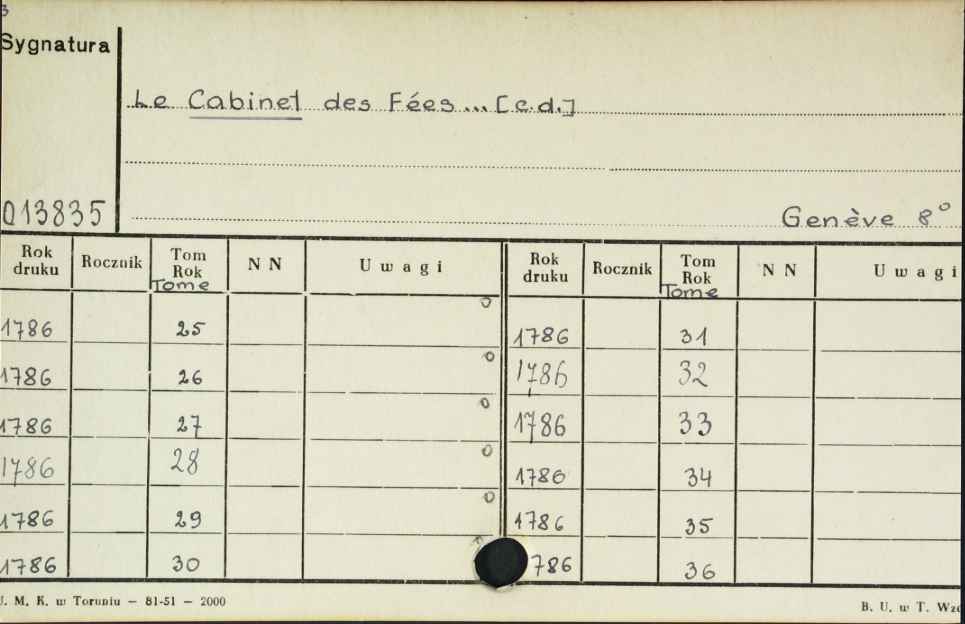 3
Sygnatura
Le Cabinet des Fées... [c.d.]
013835
Genève 8°
Rok druku Rocznik Tom Rok Tome N N Uwagi Rok druku Rocznik Tom Rok Tome N N Uwagi
1786 25 1786 31
1786 26 1786 32
1786 27 1786 33
1786 28 1786 34
1786 29 1786 35
1786 30 786 36
U. M. K. w Toruniu — 81-51 — 2000
B. U. w T. Wzó